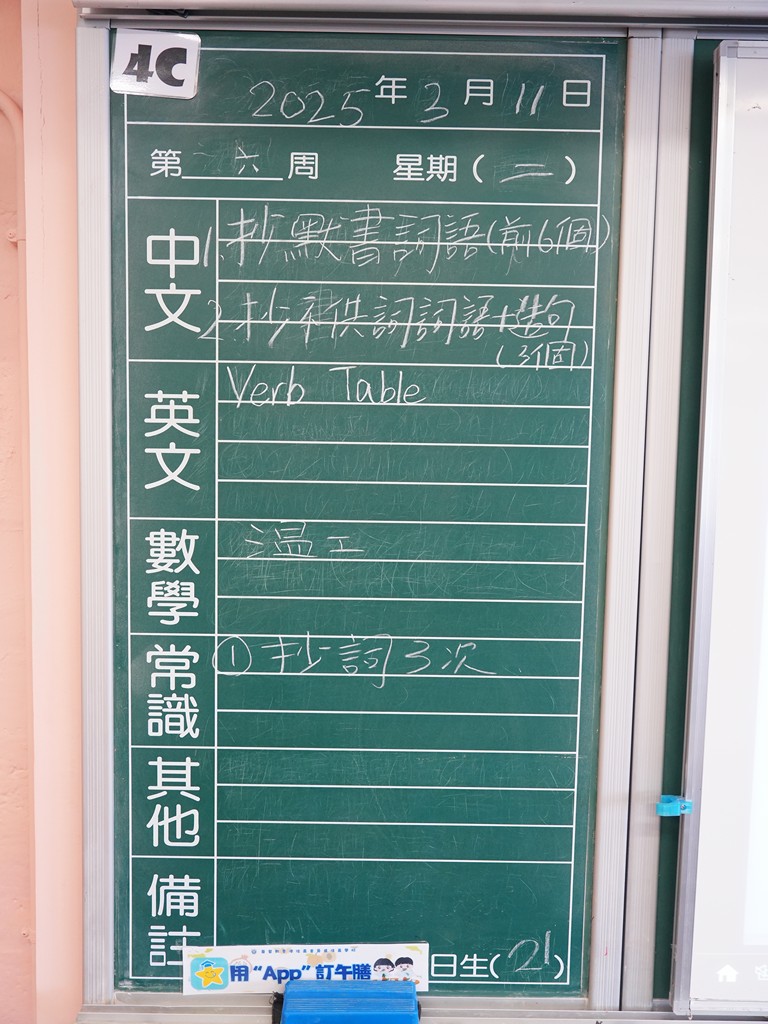 4C
2025年3月11日
第六周 星期(二)
中文
1. 抄默書詞語(前6個)
2. 抄補供詞詞語+造句
(3個)
英文
Verb Table
數學
溫工
常識
① 抄詞3次
其他
備註
用“App”訂午膳
日生(21)